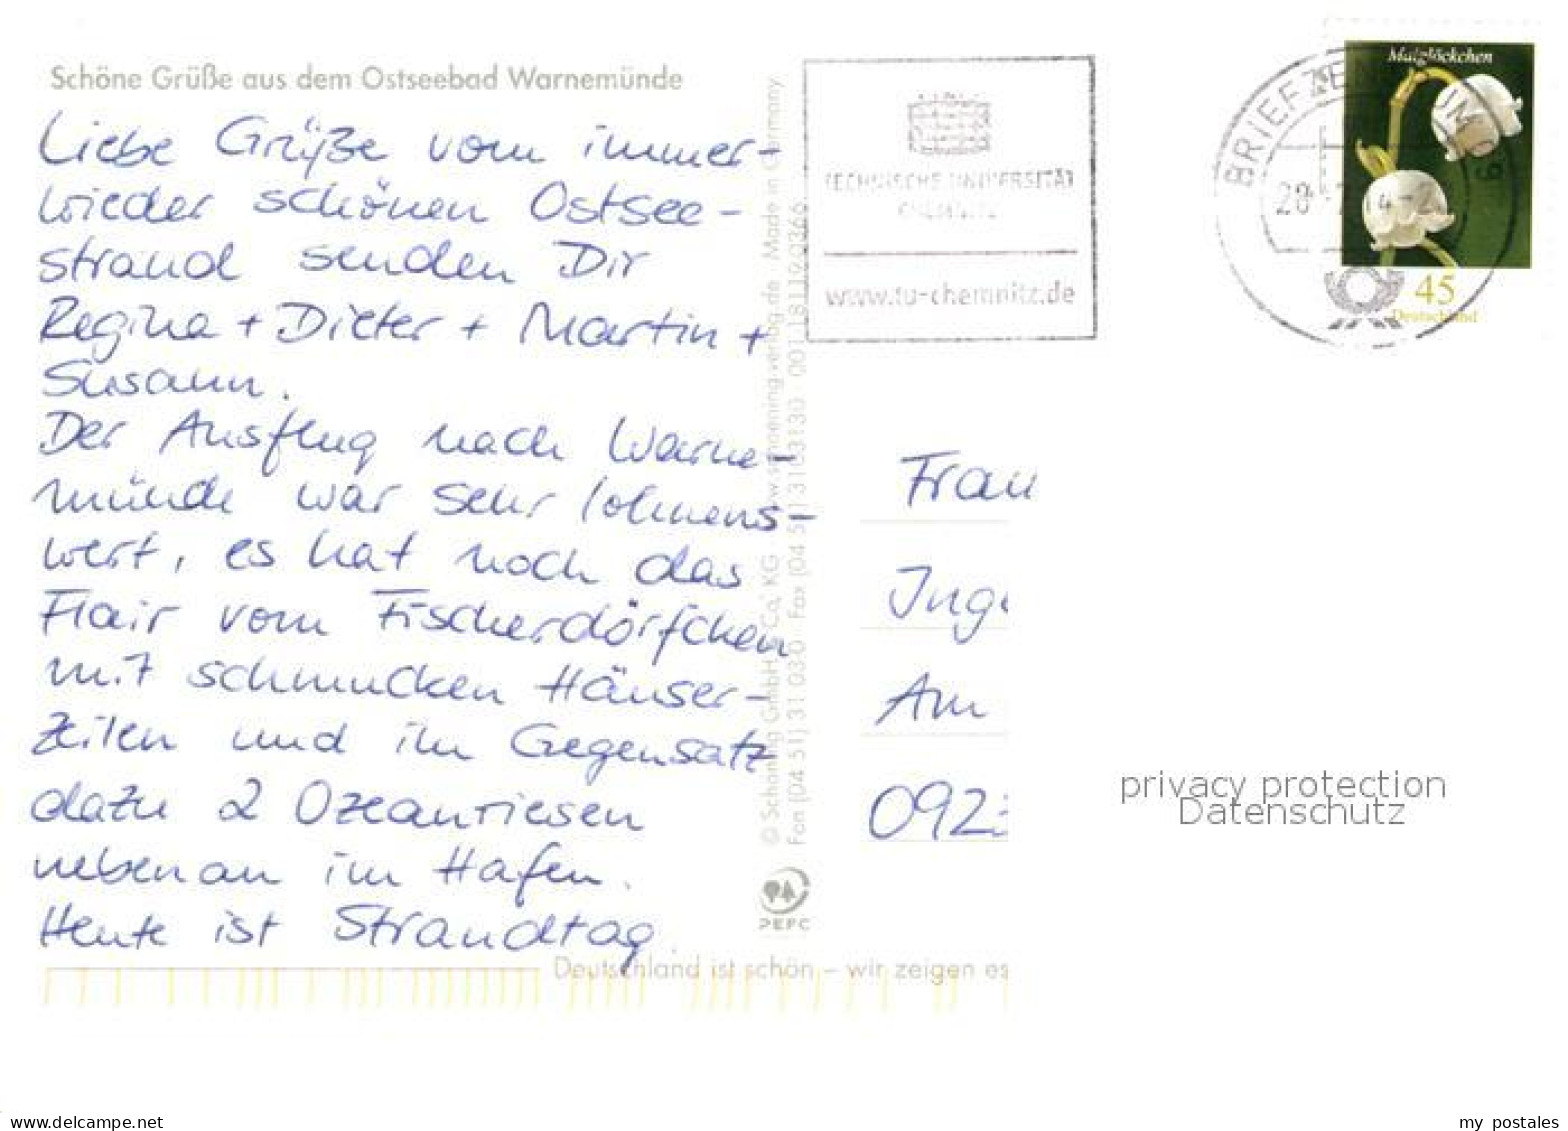 Schöne Grüße aus dem Ostseebad Warnemünde
Liebe Grüße vom immer-
wieder schönen Ostsee-
strand senden Dir
Regina + Dieter + Martin +
Susann.
Der Ausflug nach Warne-
münde war sehr lohnens-
wert, es hat noch das
Flair vom Fischerdörfchen
mit schmucken Häuser-
zeilen und im Gegensatz
dazu 2 Ozeanriesen
nebenan im Hafen.
Heute ist Strandtag.
Deutschland ist schön – wir zeigen es
© Schöning GmbH & Co. KG · www.schoening-verlag.de · Made in Germany
Fon (04 51) 3 10 3-0 · Fax (04 51) 3103130
PEFC
TECHNISCHE UNIVERSITÄT
CHEMNITZ
www.tu-chemnitz.de
BRIEFZENTRUM
Maiglöckchen
45
Deutschland
Frau
Am
privacy protection
Datenschutz
www.delcampe.net
my_postales